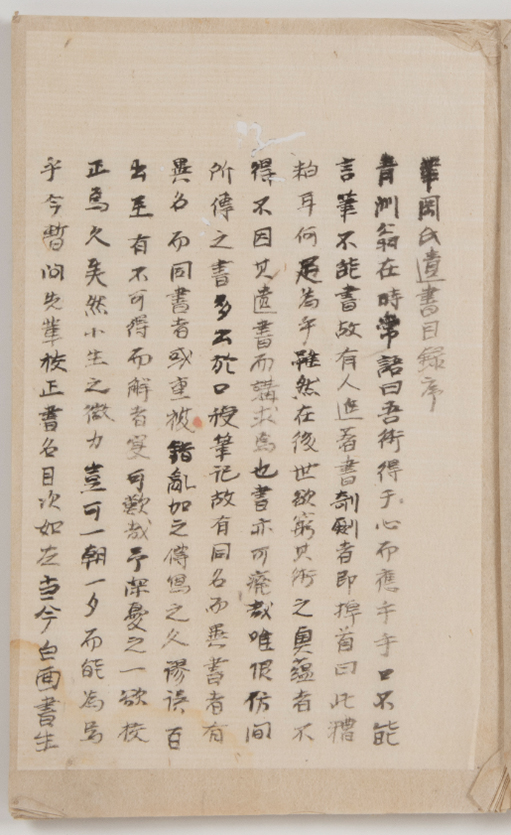 華岡氏遺書目録序
青洲翁在時常語曰吾術得于心而應乎手口不能
言筆不能書故有人進著書剞劂者即掉首曰此糟
粕耳何足為乎雖然在後世欲窮其術之奥蘊者不
得不因其遺書而講求焉也書亦可廃哉唯恨仿間
所傳之書多出於口授筆记故有同名而異書者有
異名而同書者或重複錯亂加之傳寫之久謬誤百
出至有不可得而解者寔可歎哉予深憂之一欲校
正焉久矣然小生之微力豈可一朝一夕而能為焉
乎今暫问先輩校正書名目次如左当今白面書生